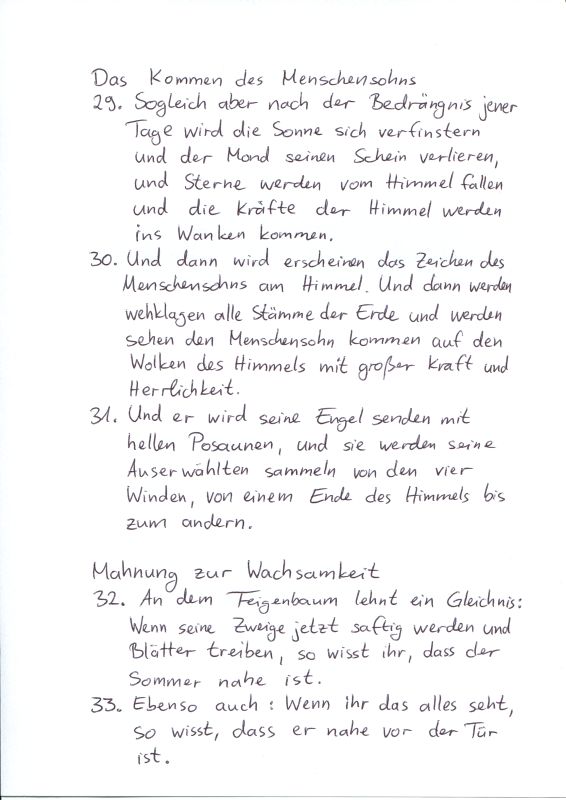 Das Kommen des Menschensohns
29. Sogleich aber nach der Bedrängnis jener
Tage wird die Sonne sich verfinstern
und der Mond seinen Schein verlieren,
und Sterne werden vom Himmel fallen
und die Kräfte der Himmel werden
ins Wanken kommen.
30. Und dann wird erscheinen das Zeichen des
Menschensohns am Himmel. Und dann werden
wehklagen alle Stämme der Erde und werden
sehen den Menschensohn kommen auf den
Wolken des Himmels mit großer Kraft und
Herrlichkeit.
31. Und er wird seine Engel senden mit
hellen Posaunen, und sie werden seine
Auserwählten sammeln von den vier
Winden, von einem Ende des Himmels bis
zum andern.
Mahnung zur Wachsamkeit
32. An dem Feigenbaum lehnt ein Gleichnis:
Wenn seine Zweige jetzt saftig werden und
Blätter treiben, so wisst ihr, dass der
Sommer nahe ist.
33. Ebenso auch: Wenn ihr das alles seht,
so wisst, dass er nahe vor der Tür
ist.